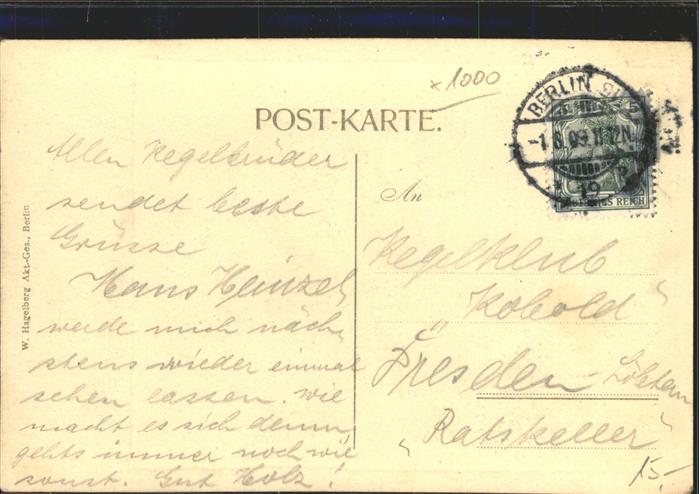 x1000
POST-KARTE.
BERLIN SW
-1.6.09.11-12N.
19
DEUTSCHES REICH
Allen Kegelbrüder
sendet beste
Grüsse
Hans Heinzel,
werde mich näch
stens wieder einmal
sehen lassen. Wie
macht es sich denn
gehts immer noch wie
sonst. Gut Holz!
An
Kegelklub
„Kobold“
Dresden-Löbtau
„Ratskeller“
15,-
W. Hagelberg Akt.-Ges., Berlin